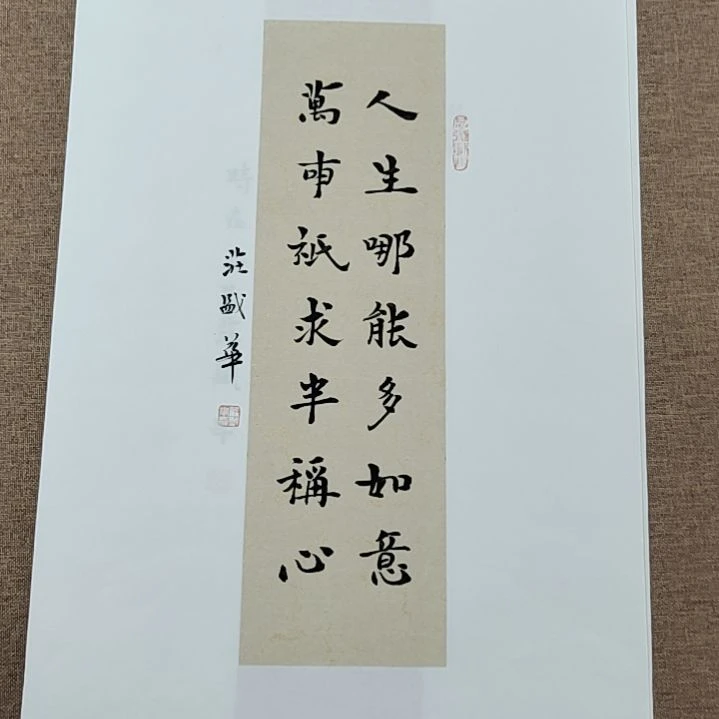 人生哪能多如意
萬事祇求半稱心
莊
華